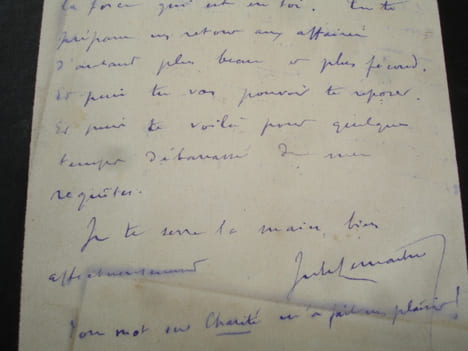 la force qui est en toi. Tu te
prépares un retour aux affaires
d'autant plus beau et plus fécond.
Et puis tu vas pouvoir te reposer.
Et puis te voilà pour quelque
temps débarrassé de mes
requêtes.
Je te serre la main bien
affectueusement
Jules Lemaître
Ton mot sur Charité m'a fait un plaisir!